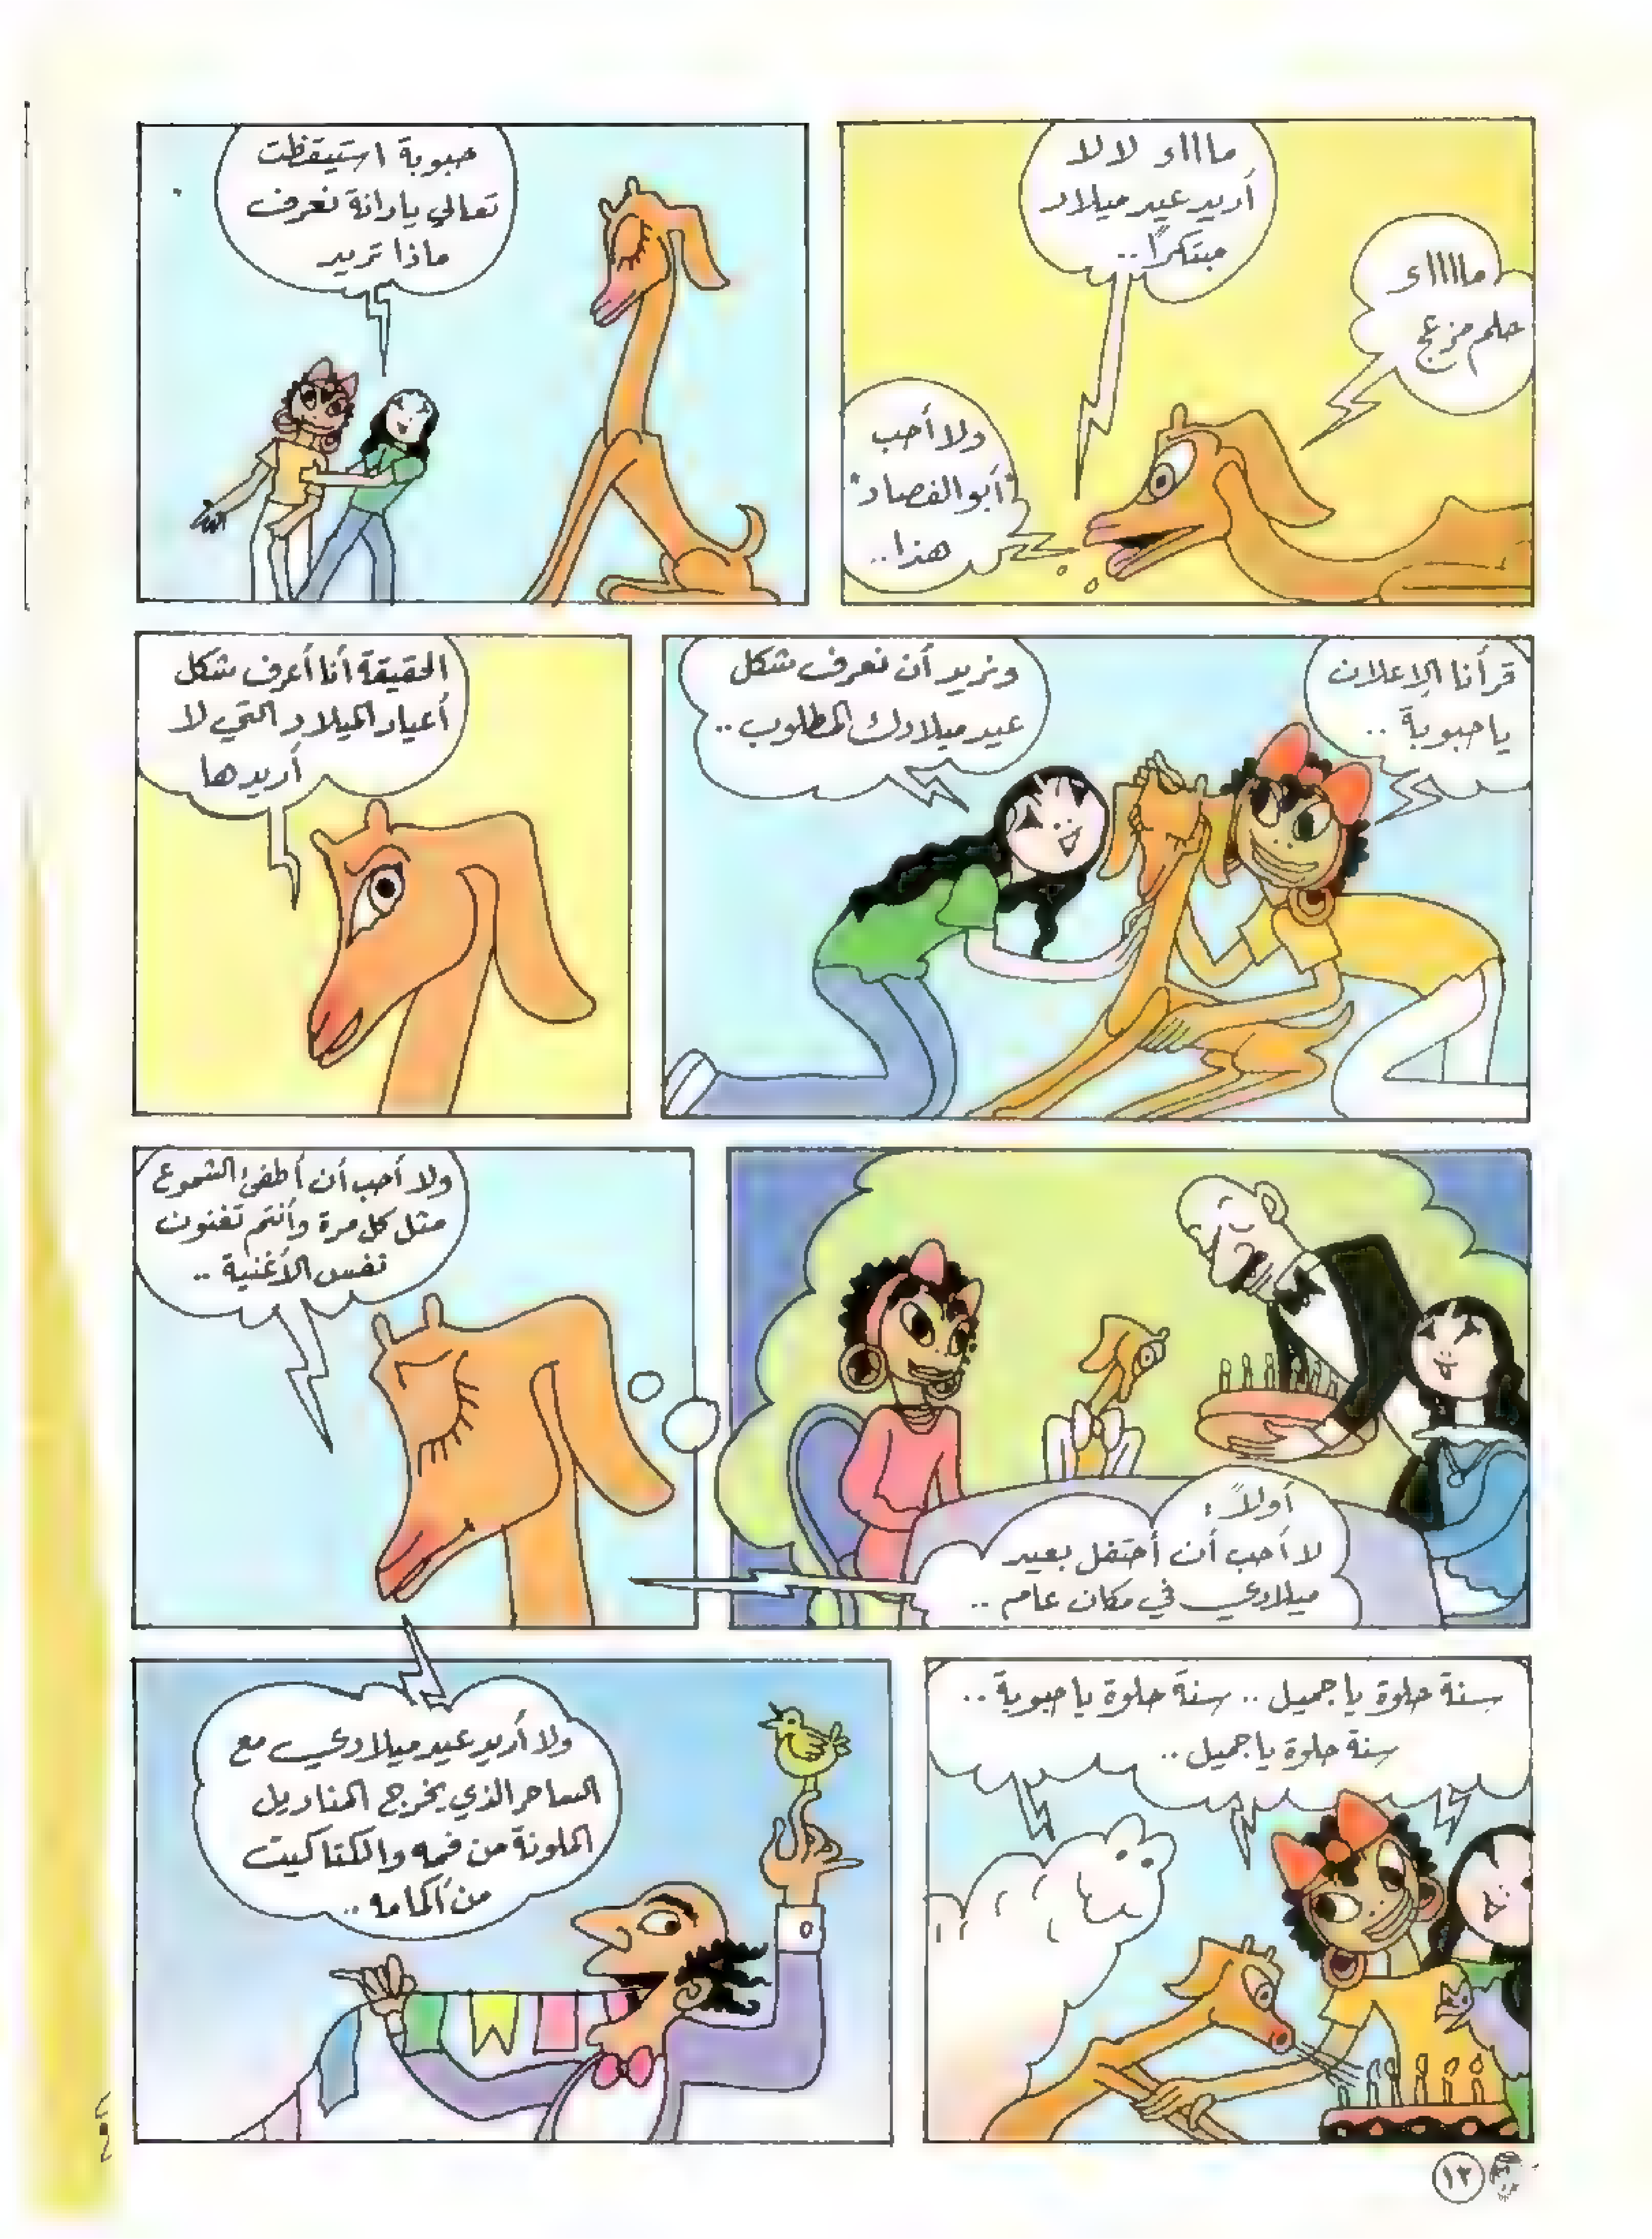 ماااء
حلم مزعج
ماااء لا لا
أريد عيد ميلاد
مبتكرًا..
ولا أحب
"أبو الفصاد"
هذا..
حبوبة استيقظت
تعالي يا دانة نعرف
ماذا تريد
قرأنا الإعلان
يا حبوبة..
ونريد أن نعرف شكل
عيد ميلادك المطلوب..
الحقيقة أنا أعرف شكل
أعياد الميلاد التي لا
أريدها
أولاً:
لا أحب أن أحتفل بعيد
ميلادي في مكان عام..
ولا أحب أن أطفئ الشموع
مثل كل مرة وأنتم تغنون
نفس الأغنية..
سنة حلوة يا جميل.. سنة حلوة يا حبوبة..
سنة حلوة يا جميل..
ولا أريد عيد ميلادي مع
الساحر الذي يخرج المناديل
الملونة من فمه والكتاكيت
من أكمامه..
١٣